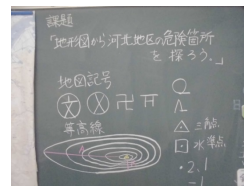 課題
「地形図から河北地区の危険箇所
を探ろう。」
地図記号
文
卍
等高線
三角点
水準点
・2.1